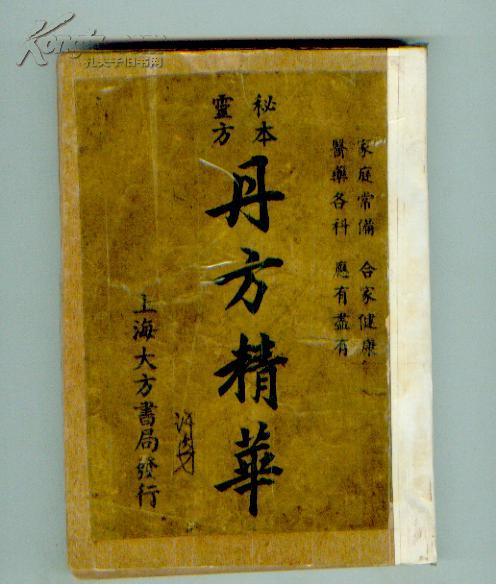 家庭常備 合家健康
醫藥各科 應有盡有
秘本
靈方
丹方精華
上海大方書局發行
孔夫子旧书网